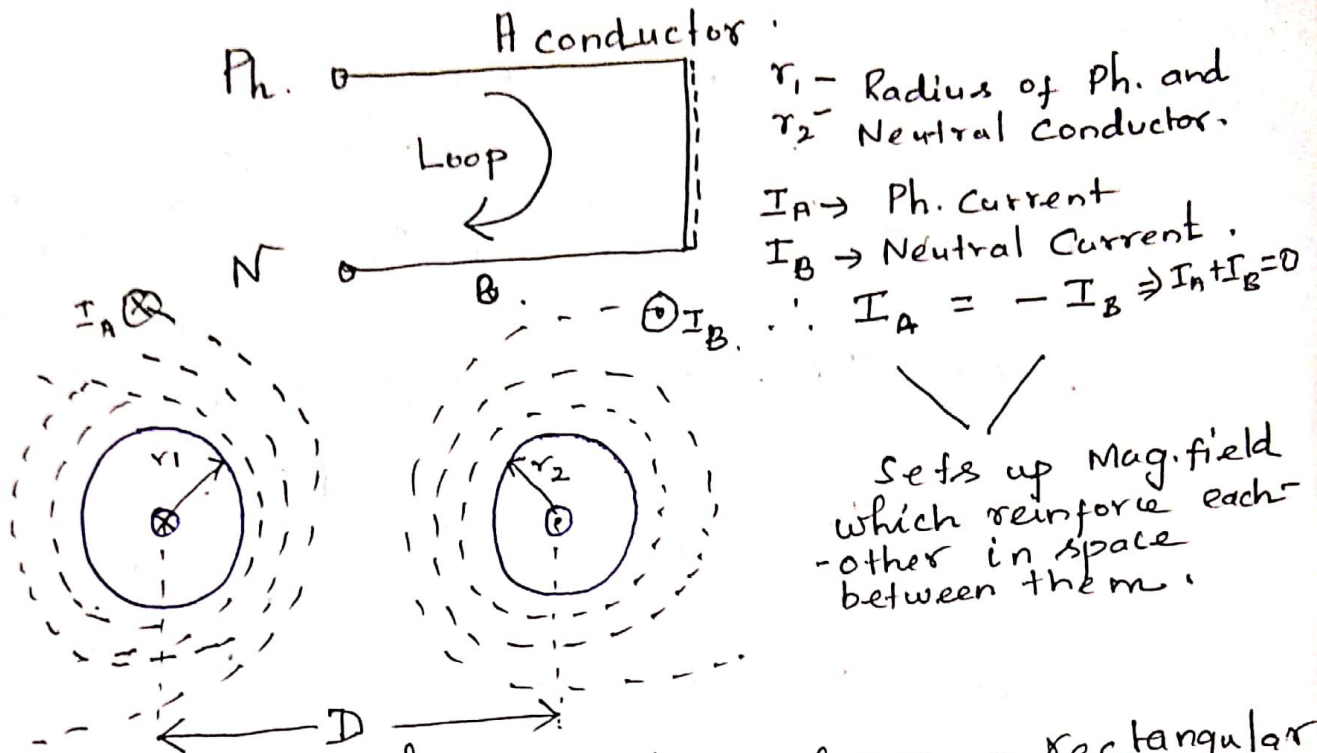 A conductor.
Ph.
Loop
N
B.
r₁ - Radius of Ph. and
r₂ - Neutral Conductor.
I_A → Ph. Current
I_B → Neutral Current.
∴ I_A = - I_B ⇒ I_A + I_B = 0
I_A ⊗
⊙ I_B.
r1
r2
Sets up Mag. field
which reinforce each-
-other in space
between them.
D
rectangular